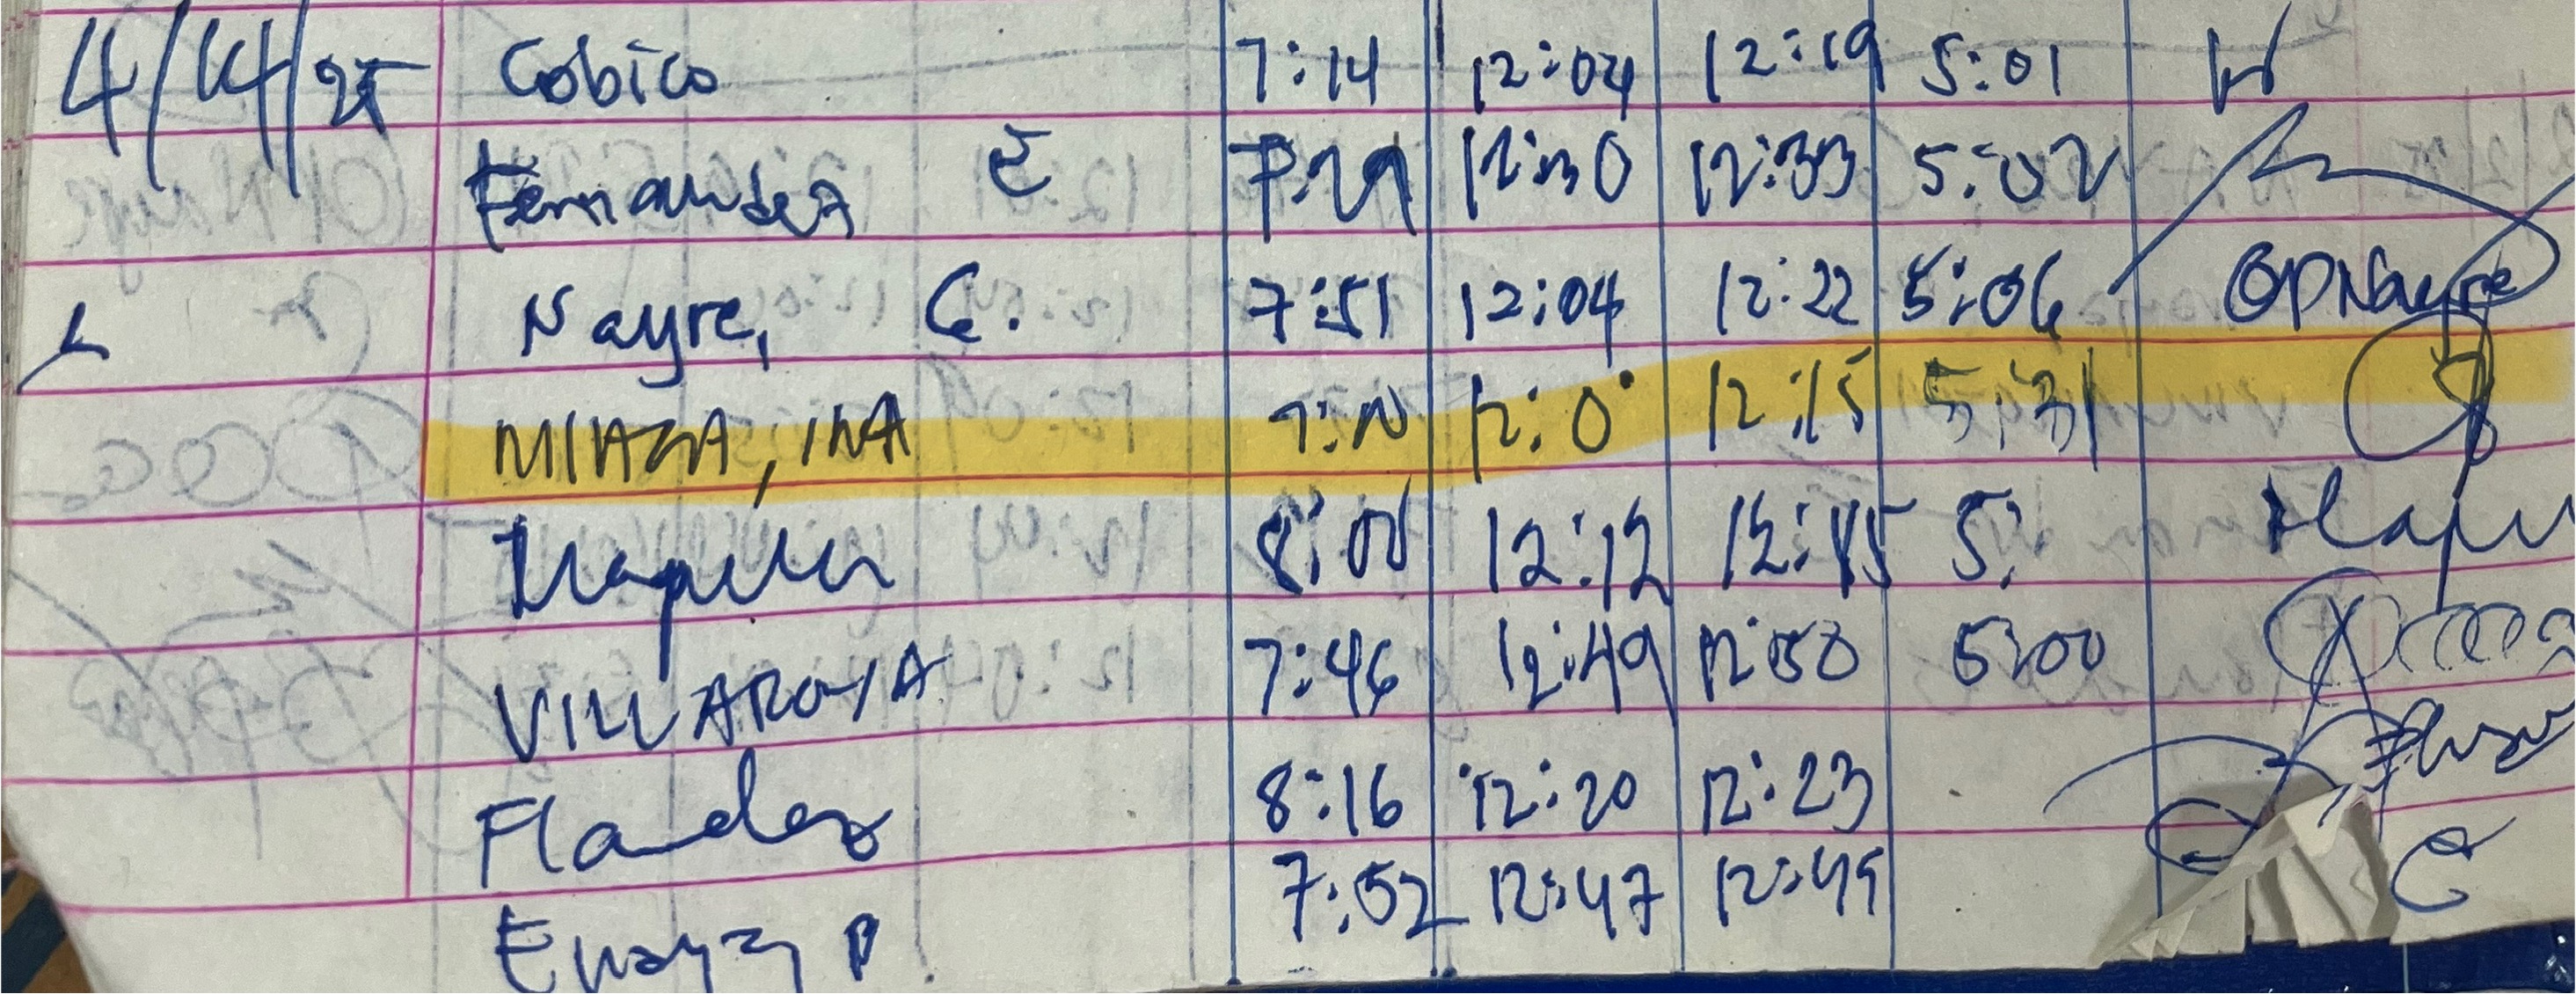 4/14/25 Cobico 7:14 12:04 12:19 5:01
Fernandez E 7:29 12:30 12:33 5:02
Nayre, G. 7:51 12:04 12:22 5:06 GPNayre
MIAZA, INA 12:0 12:15 5:31
8:00 12:12 12:45 5:
VILLAROYA 7:46 12:49 12:50 5:00
Flandez 8:16 12:20 12:23
7:52 12:47 12:49
P.